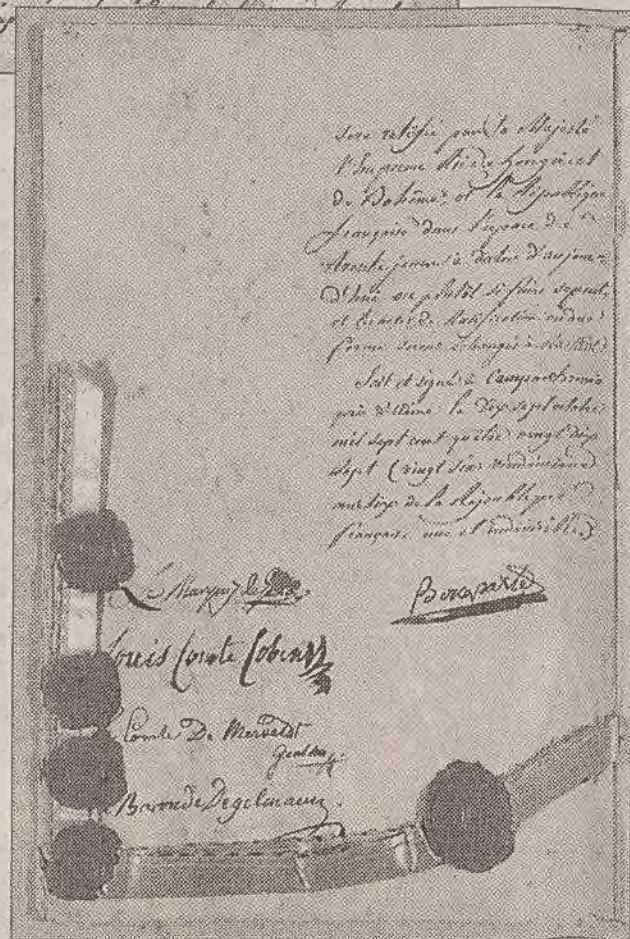 sera ratifié par Sa Majesté
l'Empereur Roi de Hongrie et
de Bohême, et la République
française dans l'espace de
trente jours à dater d'aujour-
d'hui ou plutôt si faire se peut,
et les actes de ratification en due
forme seront échangés à
Fait et signé à Campo-formio
près d'Udine le dix sept octobre
mil sept cent quatre vingt dix
sept (vingt six vendémiaire
an six de la République
française une et indivisible)
Le Marquis de
Bonaparte
Louis Comte Cobenzl
Comte De Merveldt
Baron de Degelmann